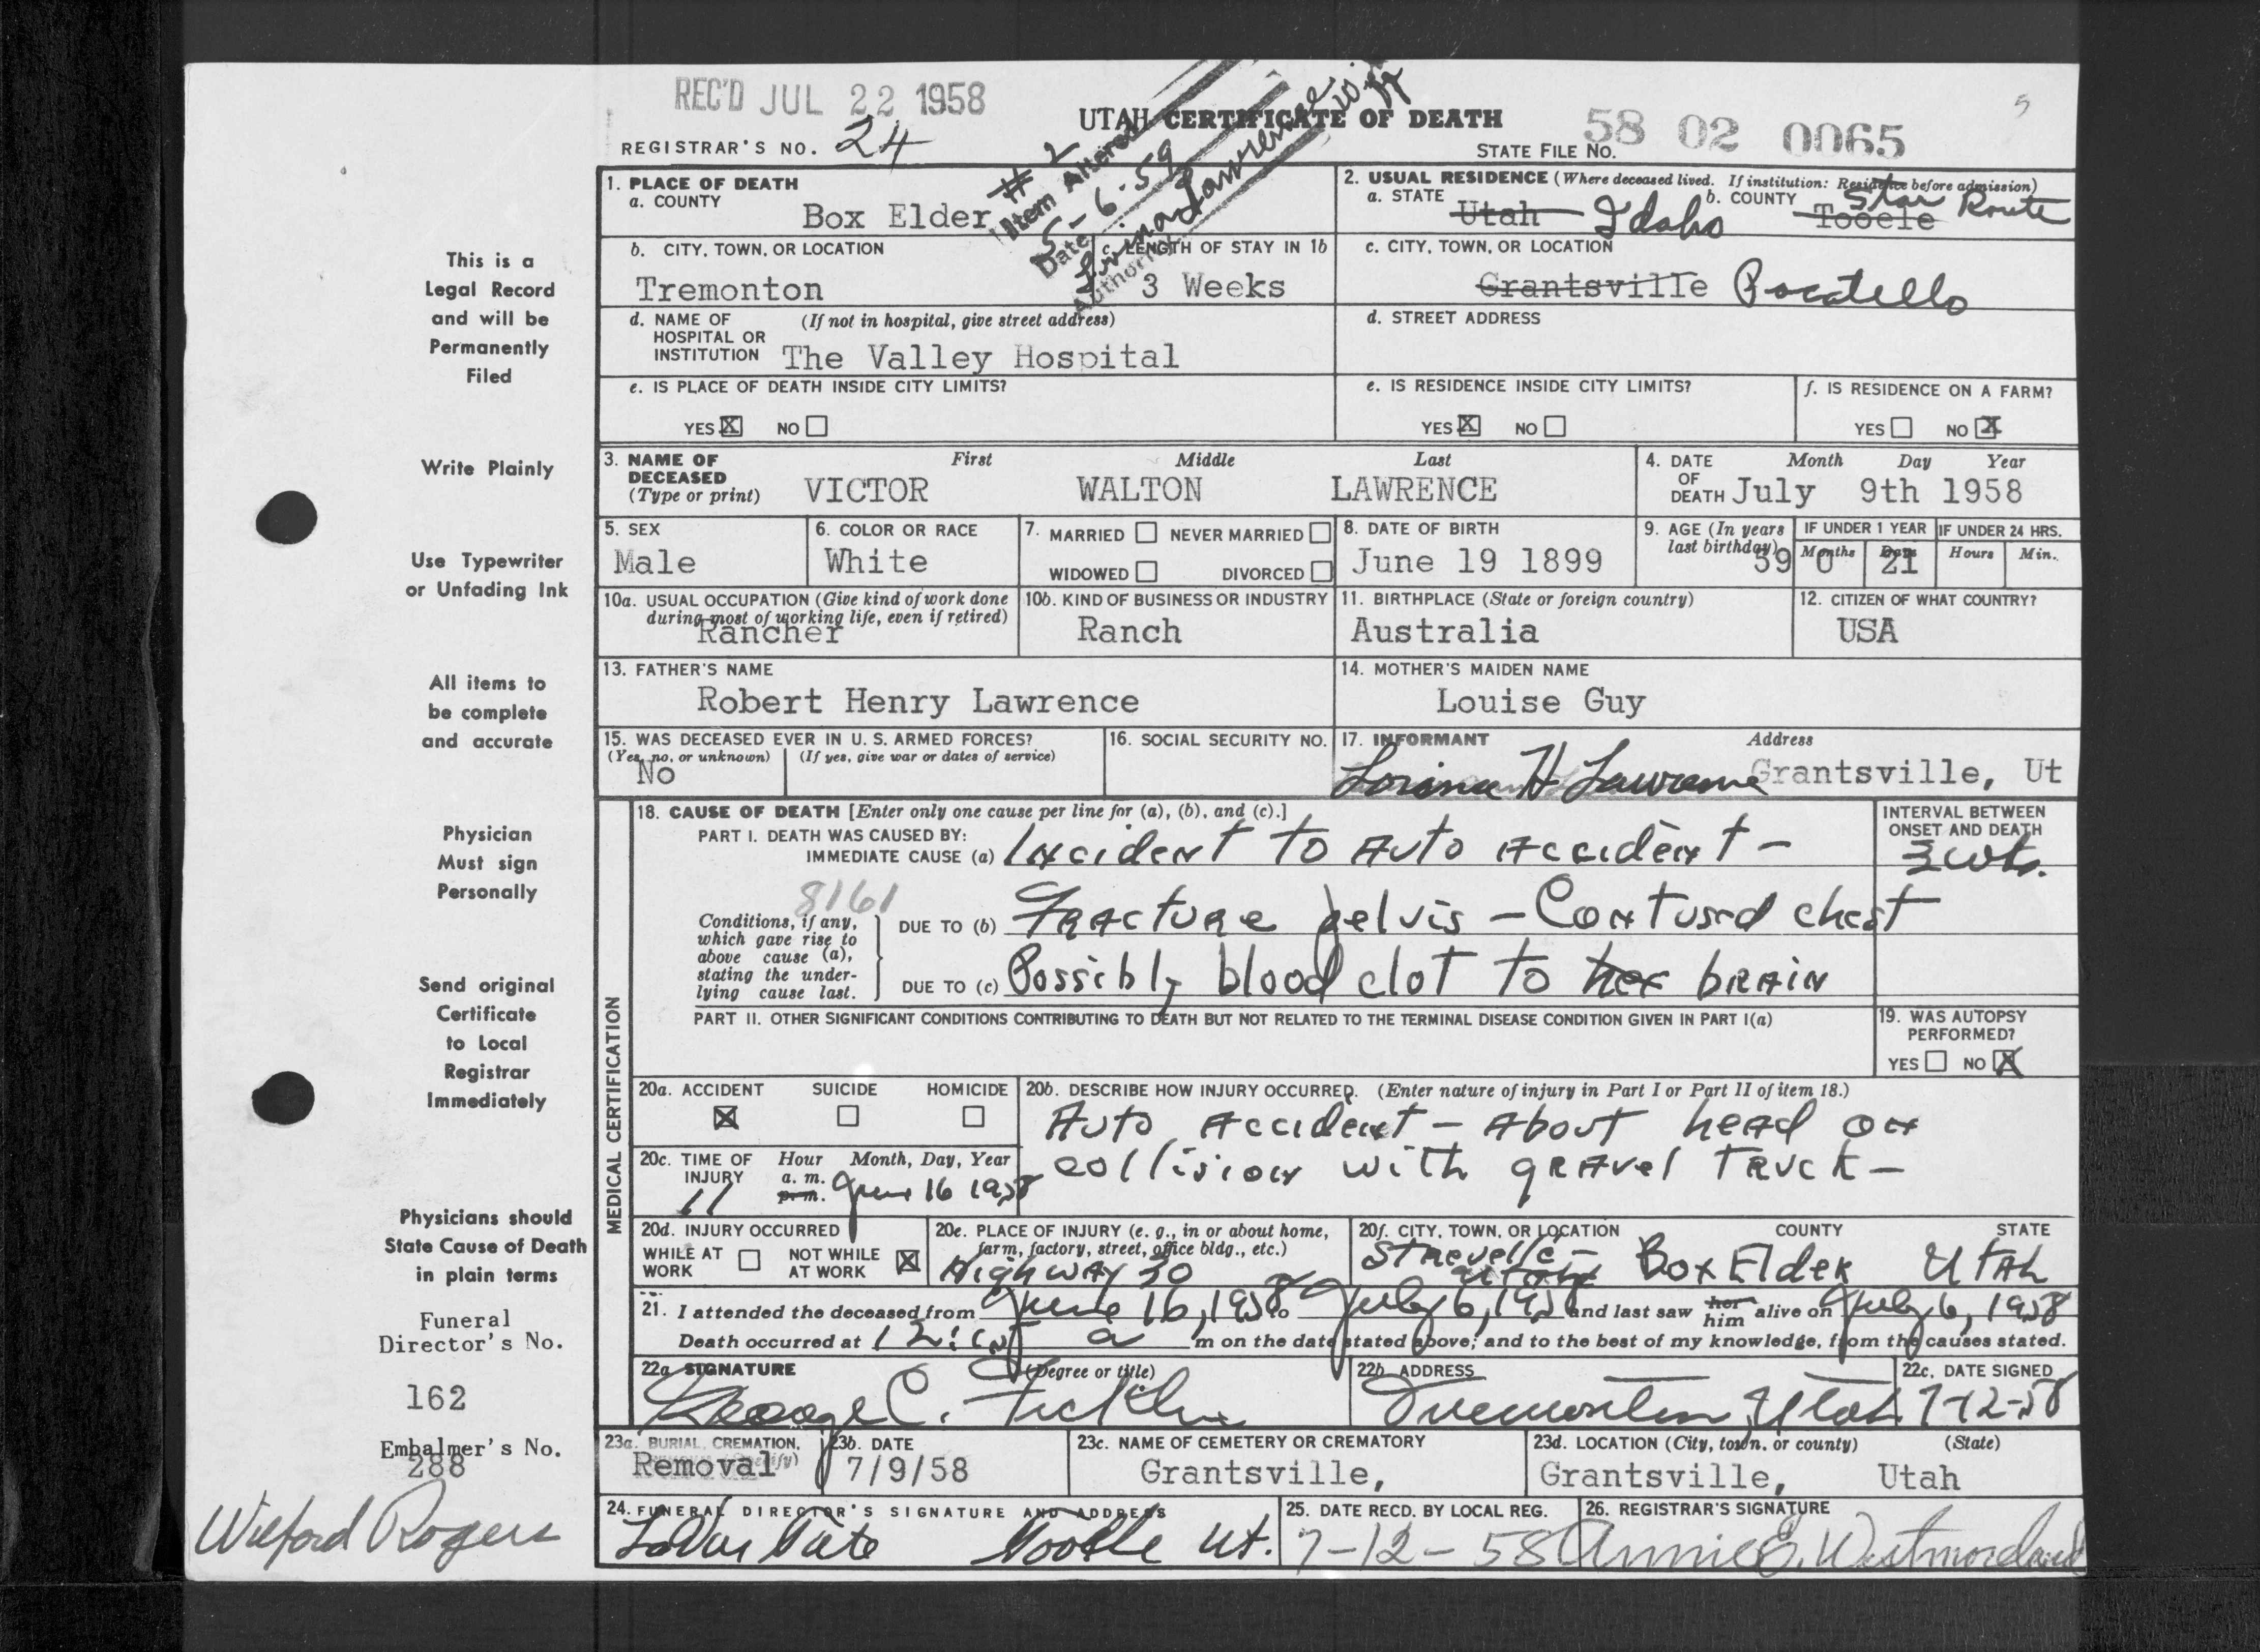 REC'D JUL 22 1958
UTAH CERTIFICATE OF DEATH
REGISTRAR'S NO. 24
STATE FILE NO. 58 02 0065
# 2
Item Altered
5-6-59
Date
Lorina Lawrence
Authority
1. PLACE OF DEATH
a. COUNTY
Box Elder
2. USUAL RESIDENCE (Where deceased lived. If institution: Residence before admission)
a. STATE Utah Idaho b. COUNTY Tooele Star Route
b. CITY, TOWN, OR LOCATION
Tremonton
c. LENGTH OF STAY IN 1b
3 Weeks
c. CITY, TOWN, OR LOCATION
Grantsville Pocatello
d. NAME OF HOSPITAL OR INSTITUTION (If not in hospital, give street address)
The Valley Hospital
d. STREET ADDRESS
e. IS PLACE OF DEATH INSIDE CITY LIMITS?
YES X NO
e. IS RESIDENCE INSIDE CITY LIMITS?
YES X NO
f. IS RESIDENCE ON A FARM?
YES NO X
3. NAME OF DECEASED (Type or print)
First Middle Last
VICTOR WALTON LAWRENCE
4. DATE OF DEATH Month Day Year
July 9th 1958
5. SEX
Male
6. COLOR OR RACE
White
7. MARRIED NEVER MARRIED
WIDOWED DIVORCED
8. DATE OF BIRTH
June 19 1899
9. AGE (In years last birthday)
59
IF UNDER 1 YEAR
Months Days
0 21
IF UNDER 24 HRS.
Hours Min.
10a. USUAL OCCUPATION (Give kind of work done during most of working life, even if retired)
Rancher
10b. KIND OF BUSINESS OR INDUSTRY
Ranch
11. BIRTHPLACE (State or foreign country)
Australia
12. CITIZEN OF WHAT COUNTRY?
USA
13. FATHER'S NAME
Robert Henry Lawrence
14. MOTHER'S MAIDEN NAME
Louise Guy
15. WAS DECEASED EVER IN U. S. ARMED FORCES?
(Yes, no, or unknown) (If yes, give war or dates of service)
No
16. SOCIAL SECURITY NO.
17. INFORMANT Address
Lorina H Lawrence Grantsville, Ut
MEDICAL CERTIFICATION
18. CAUSE OF DEATH [Enter only one cause per line for (a), (b), and (c).]
PART I. DEATH WAS CAUSED BY:
IMMEDIATE CAUSE (a) Incident to Auto Accident -
INTERVAL BETWEEN ONSET AND DEATH
3 wks.
8161
Conditions, if any, which gave rise to above cause (a), stating the underlying cause last.
DUE TO (b) Fracture pelvis - Contused chest
DUE TO (c) Possibly blood clot to her brain
PART II. OTHER SIGNIFICANT CONDITIONS CONTRIBUTING TO DEATH BUT NOT RELATED TO THE TERMINAL DISEASE CONDITION GIVEN IN PART I(a)
19. WAS AUTOPSY PERFORMED?
YES NO X
20a. ACCIDENT SUICIDE HOMICIDE
X
20b. DESCRIBE HOW INJURY OCCURRED. (Enter nature of injury in Part I or Part II of item 18.)
Auto Accident - About head on
collision with gravel truck -
20c. TIME OF INJURY Hour Month, Day, Year
11 a. m. p. m. June 16 1958
20d. INJURY OCCURRED
WHILE AT WORK NOT WHILE AT WORK X
20e. PLACE OF INJURY (e. g., in or about home, farm, factory, street, office bldg., etc.)
Highway 30
20f. CITY, TOWN, OR LOCATION COUNTY STATE
Strevelle - Utah Box Elder Utah
21. I attended the deceased from June 16, 1958 to July 6, 1958 and last saw her him alive on July 6, 1958
Death occurred at a m on the date stated above; and to the best of my knowledge, from the causes stated.
22a. SIGNATURE (Degree or title)
George C. Ficklin
22b. ADDRESS
Tremonton, Utah
22c. DATE SIGNED
7-12-58
23a. BURIAL, CREMATION,
Removal
23b. DATE
7/9/58
23c. NAME OF CEMETERY OR CREMATORY
Grantsville,
23d. LOCATION (City, town, or county) (State)
Grantsville, Utah
24. FUNERAL DIRECTOR'S SIGNATURE AND ADDRESS
LaVar Tate Tooele Ut.
25. DATE RECD. BY LOCAL REG.
7-12-58
26. REGISTRAR'S SIGNATURE
Annie E. Westmoreland
This is a
Legal Record
and will be
Permanently
Filed
Write Plainly
Use Typewriter
or Unfading Ink
All items to
be complete
and accurate
Physician
Must sign
Personally
Send original
Certificate
to Local
Registrar
Immediately
Physicians should
State Cause of Death
in plain terms
Funeral
Director's No.
162
Embalmer's No.
288
Wilford Rogers